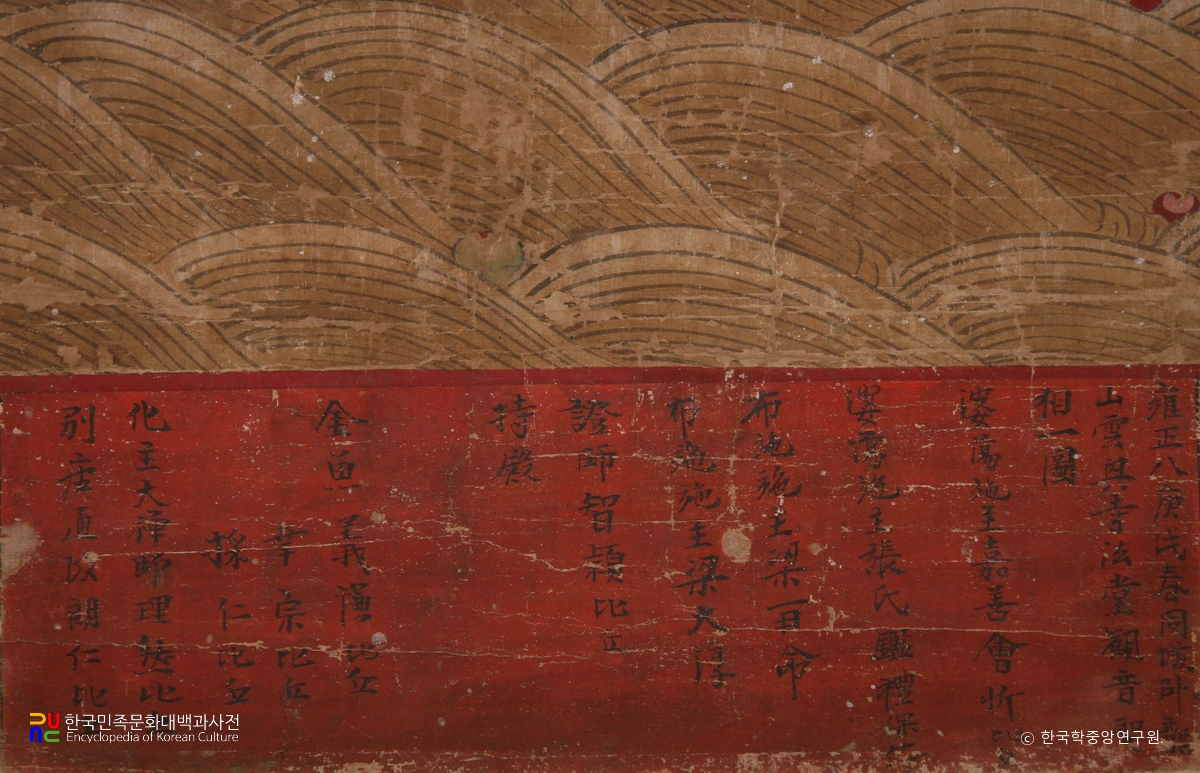 雍正八庚戌春同
山雲興寺法堂觀音
相一圖
婆蕩施主嘉善會忻比
婆蕩施主張氏 禮
布施施主梁一命
布施施主梁大淳
證師智穎比丘
持殿
金魚義謙比丘
宗比丘
採仁比丘
化主大禪師理 比
別座 朗仁比
한국민족문화대백과사전
Encyclopedia of Korean Culture
© 한국학중앙연구원